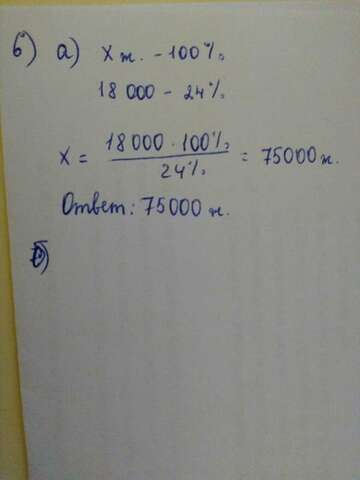 6) a) х ж. - 100%
18 000 - 24%
X = 18000 · 100% / 24% = 75000 ж.
Ответ: 75000 ж.
б)